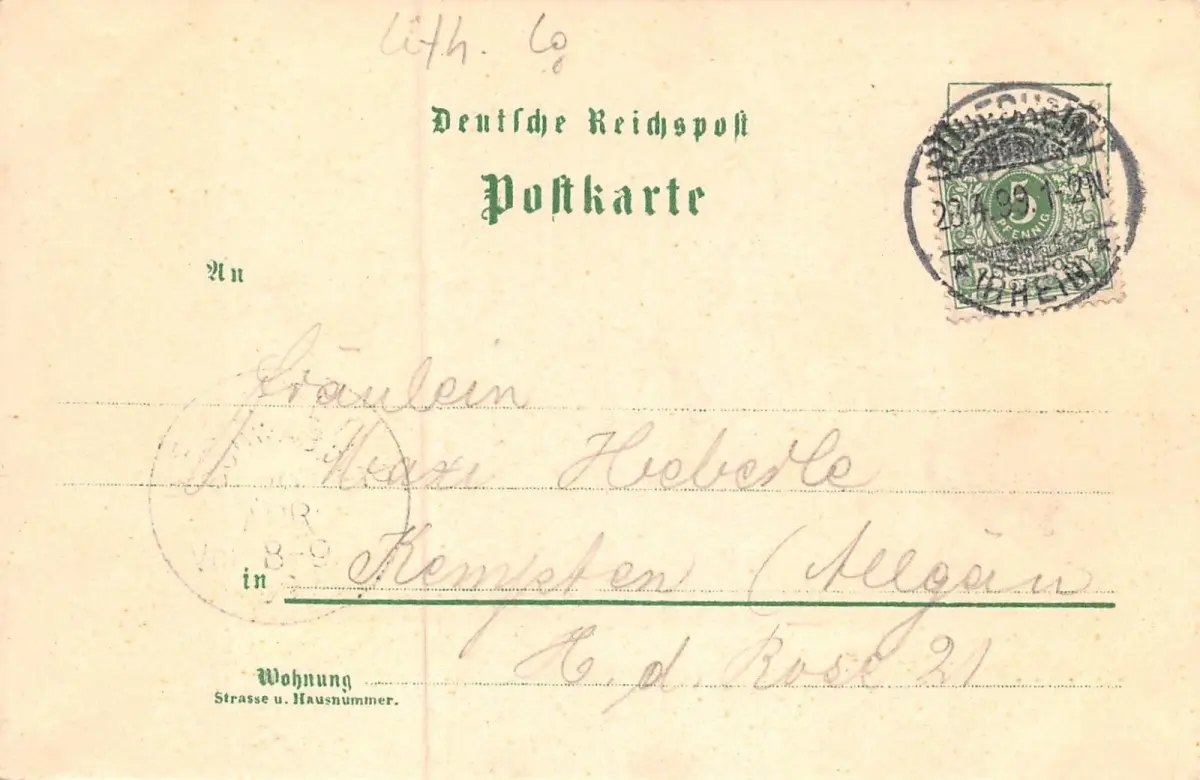 Lith. Co
Deutsche Reichspost
Postkarte
RÜDESHEIM
23.4.99. 1-2N.
* (RHEIN) *
5
PFENNIG
REICHSPOST
An
Fräulein
Maxi Heberle
APR
8-9
in Kempten (Allgäu
H. d. Rose 21
Wohnung
Strasse u. Hausnummer.